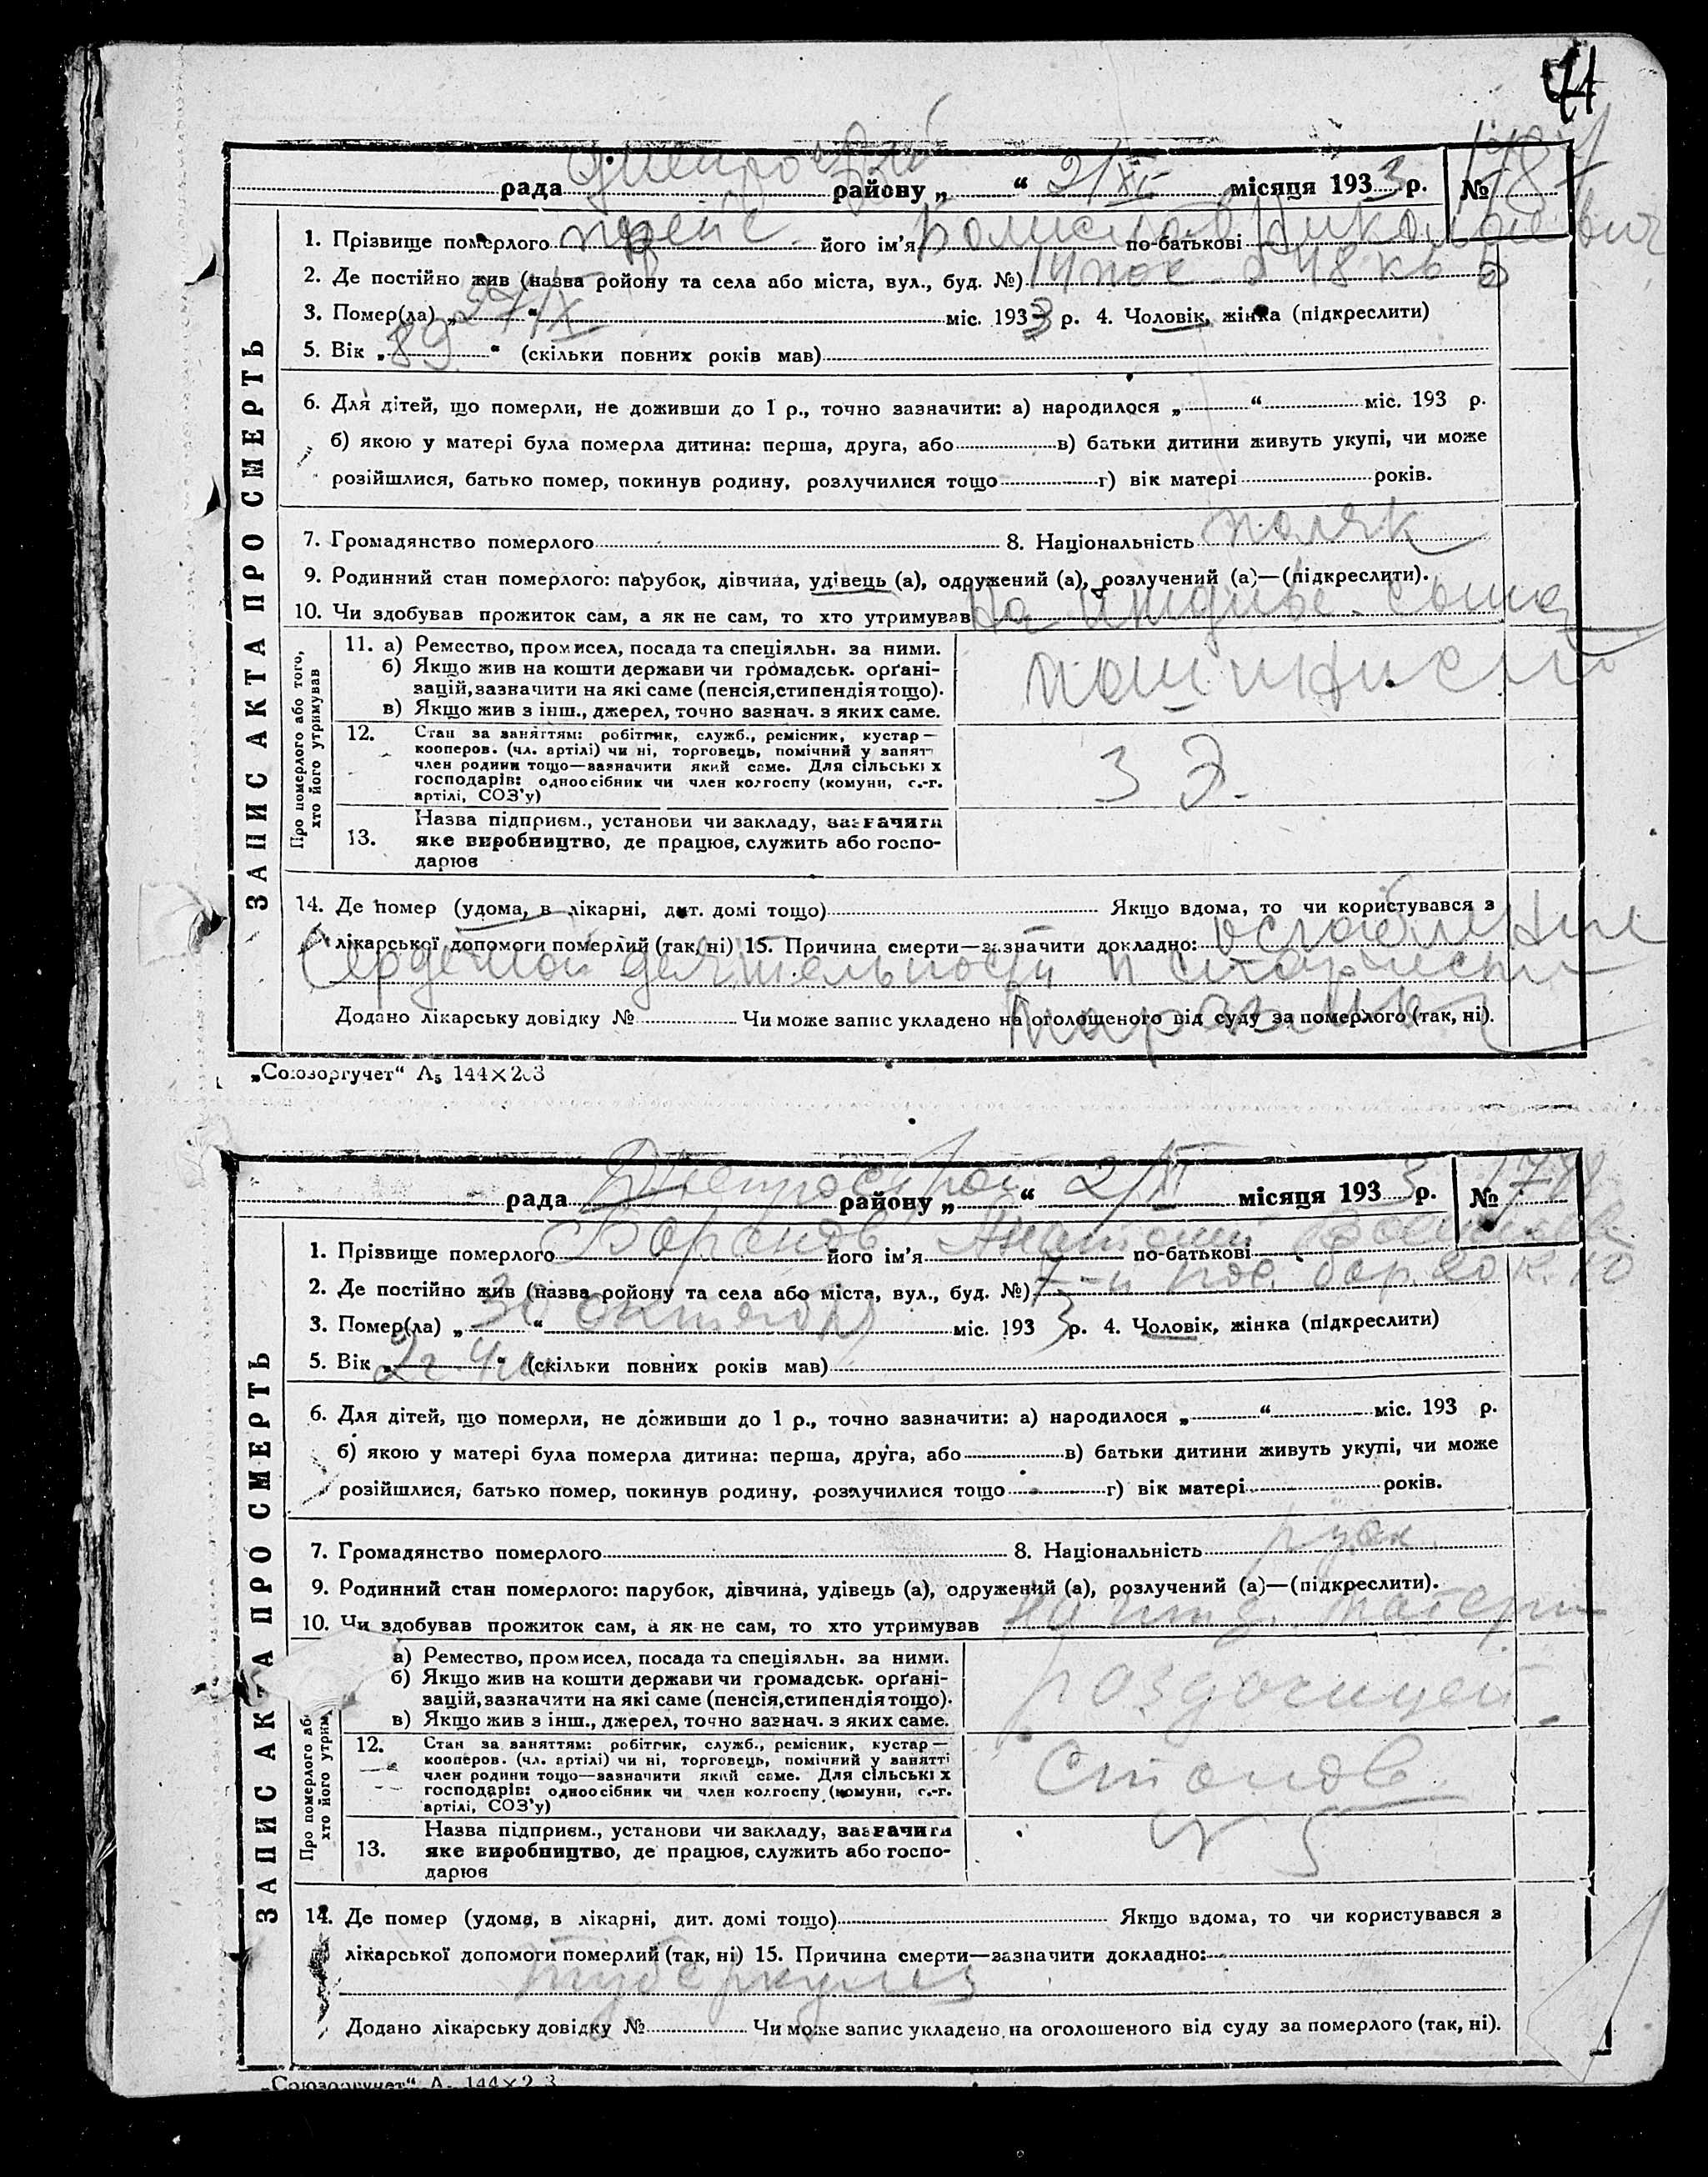 рада Днепрострой району „ “ 2/XI місяця 1933 р. № 1787
1. Прізвище померлого його ім'я Болислав по-батькові Николаевич
2. Де постійно жив (назва ройону та села або міста, вул., буд. №) 14 пос. б 48 кв 5
3. Помер(ла) „ 27/X “ міс. 1933 р. 4. Чоловік, жінка (підкреслити)
5. Вік „ 89 “ (скільки повних років мав)
6. Для дітей, що померли, не доживши до 1 р., точно зазначити: а) народилося „ “ міс. 193 р.
б) якою у матері була померла дитина: перша, друга, або в) батьки дитини живуть укупі, чи може
розійшлися, батько помер, покинув родину, розлучилися тощо г) вік матері років.
7. Громадянство померлого 8. Національність поляк
9. Родинний стан померлого: парубок, дівчина, удівець (а), одружений (а), розлучений (а)—(підкреслити).
10. Чи здобував прожиток сам, а як не сам, то хто утримував на иждиве. сына
ЗАПИС АКТА ПРО СМЕРТЬ
Про померлого або того, хто його утримував
11. а) Ремество, промисел, посада та спеціяльн. за ними.
б) Якщо жив на кошти держави чи громадськ. орґані-
зацій, зазначити на які саме (пенсія, стипендія тощо).
в) Якщо жив з інш., джерел, точно зазнач. з яких саме.
12. Стан за заняттям: робітник, служб., ремісник, кустар—
кооперов. (чл. артілі) чи ні, торговець, помічний у занятті
член родини тощо—зазначити який саме. Для сільських
господарів: одноосібник чи член колгоспу (комуни, с.-г.
артілі, СОЗ'у)
З Э.
13. Назва підприєм., установи чи закладу, зазначити
яке виробництво, де працює, служить або госпо-
дарює
14. Де помер (удома, в лікарні, дит. домі тощо) Якщо вдома, то чи користувався з
лікарської допомоги померлий (так, ні) 15. Причина смерти—зазначити докладно: ослабление
сердечной деятельности и старческий
маразм
Додано лікарську довідку № Чи може запис укладено на оголошеного від суду за померлого (так, ні).
„Союзоргучет“ А5 144×203
рада Днепрострой району „ “ 2/XI місяця 1933 р. № 1788
1. Прізвище померлого Баранов його ім'я Анатолий по-батькові
2. Де постійно жив (назва ройону та села або міста, вул., буд. №) 7-й пос. бар. 20 к. 10
3. Помер(ла) „ 30 “ октября міс. 1933 р. 4. Чоловік, жінка (підкреслити)
5. Вік „ 2г 4м “ (скільки повних років мав)
6. Для дітей, що померли, не доживши до 1 р., точно зазначити: а) народилося „ “ міс. 193 р.
б) якою у матері була померла дитина: перша, друга, або в) батьки дитини живуть укупі, чи може
розійшлися, батько помер, покинув родину, розлучилися тощо г) вік матері років.
7. Громадянство померлого 8. Національність русск.
9. Родинний стан померлого: парубок, дівчина, удівець (а), одружений (а), розлучений (а)—(підкреслити).
10. Чи здобував прожиток сам, а як не сам, то хто утримував на ижд. матери
ЗАПИС АКТА ПРО СМЕРТЬ
Про померлого аб
хто його утрим
а) Ремество, промисел, посада та спеціяльн. за ними.
б) Якщо жив на кошти держави чи громадськ. орґані-
зацій, зазначити на які саме (пенсія, стипендія тощо).
в) Якщо жив з інш., джерел, точно зазнач. з яких саме.
12. Стан за заняттям: робітник, служб., ремісник, кустар—
кооперов. (чл. артілі) чи ні, торговець, помічний у занятті
член родини тощо—зазначити який саме. Для сільських
господарів: одноосібник чи член колгоспу (комуни, с.-г.
артілі, СОЗ'у)
13. Назва підприєм., установи чи закладу, зазначити
яке виробництво, де працює, служить або госпо-
дарює
№ 5
14. Де помер (удома, в лікарні, дит. домі тощо) Якщо вдома, то чи користувався з
лікарської допомоги померлий (так, ні) 15. Причина смерти—зазначити докладно:
туберкулез
Додано лікарську довідку № Чи може запис укладено на оголошеного від суду за померлого (так, ні).
„Союзоргучет“ А5 144×2 3